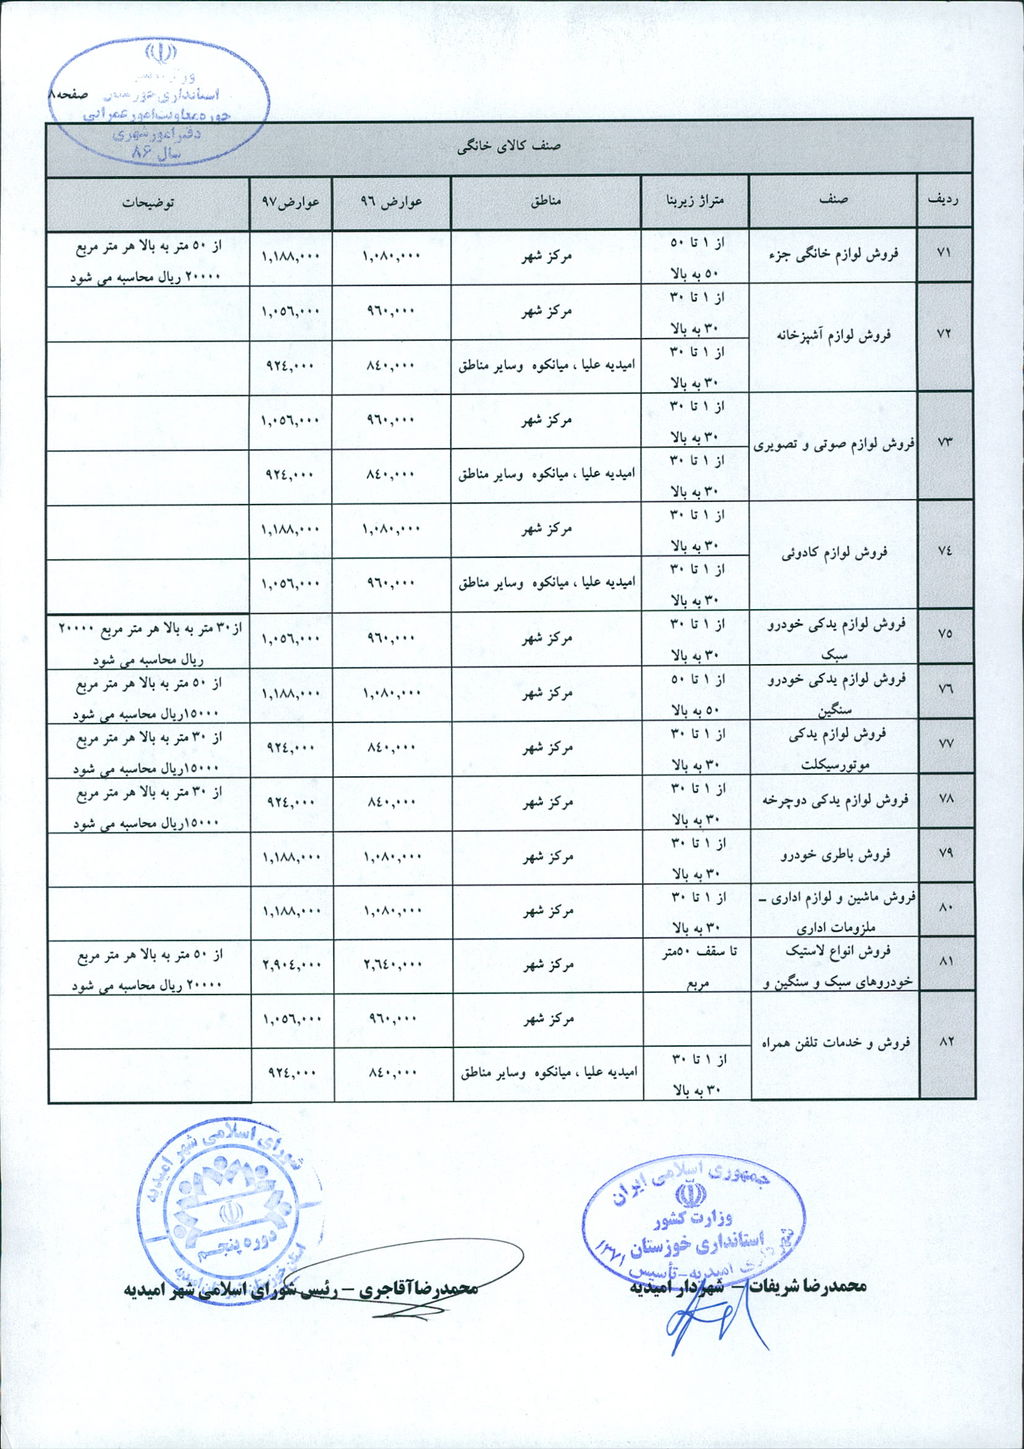 صفحه۸
استانداری خوزستان
حوزه معاونت امور عمرانی
دفتر امور شهری
سال ۸۶
صنف کالای خانگی
ردیف صنف متراژ زیربنا مناطق عوارض ۹۶ عوارض۹۷ توضیحات
۷۱ فروش لوازم خانگی جزء از ۱ تا ۵۰ مرکز شهر ۱,۰۸۰,۰۰۰ ۱,۱۸۸,۰۰۰ از ۵۰ متر به بالا هر متر مربع
۵۰ به بالا ۲۰۰۰۰ ریال محاسبه می شود
۷۲ فروش لوازم آشپزخانه از ۱ تا ۳۰ مرکز شهر ۹٦۰,۰۰۰ ۱,۰۵٦,۰۰۰
۳۰ به بالا
از ۱ تا ۳۰ امیدیه علیا ، میانکوه وسایر مناطق ۸٤۰,۰۰۰ ۹۲٤,۰۰۰
۳۰ به بالا
۷۳ فروش لوازم صوتی و تصویری از ۱ تا ۳۰ مرکز شهر ۹٦۰,۰۰۰ ۱,۰۵٦,۰۰۰
۳۰ به بالا
از ۱ تا ۳۰ امیدیه علیا ، میانکوه وسایر مناطق ۸٤۰,۰۰۰ ۹۲٤,۰۰۰
۳۰ به بالا
۷٤ فروش لوازم کادوئی از ۱ تا ۳۰ مرکز شهر ۱,۰۸۰,۰۰۰ ۱,۱۸۸,۰۰۰
۳۰ به بالا
از ۱ تا ۳۰ امیدیه علیا ، میانکوه وسایر مناطق ۹٦۰,۰۰۰ ۱,۰۵٦,۰۰۰
۳۰ به بالا
۷۵ فروش لوازم یدکی خودرو از ۱ تا ۳۰ مرکز شهر ۹٦۰,۰۰۰ ۱,۰۵٦,۰۰۰ از۳۰ متر به بالا هر متر مربع ۲۰۰۰۰
سبک ۳۰ به بالا ریال محاسبه می شود
۷٦ فروش لوازم یدکی خودرو از ۱ تا ۵۰ مرکز شهر ۱,۰۸۰,۰۰۰ ۱,۱۸۸,۰۰۰ از ۵۰ متر به بالا هر متر مربع
سنگین ۵۰ به بالا ۱۵۰۰۰ریال محاسبه می شود
۷۷ فروش لوازم یدکی از ۱ تا ۳۰ مرکز شهر ۸٤۰,۰۰۰ ۹۲٤,۰۰۰ از ۳۰ متر به بالا هر متر مربع
موتورسیکلت ۳۰ به بالا ۱۵۰۰۰ریال محاسبه می شود
۷۸ فروش لوازم یدکی دوچرخه از ۱ تا ۳۰ مرکز شهر ۸٤۰,۰۰۰ ۹۲٤,۰۰۰ از ۳۰ متر به بالا هر متر مربع
۳۰ به بالا ۱۵۰۰۰ریال محاسبه می شود
۷۹ فروش باطری خودرو از ۱ تا ۳۰ مرکز شهر ۱,۰۸۰,۰۰۰ ۱,۱۸۸,۰۰۰
۳۰ به بالا
۸۰ فروش ماشین و لوازم اداری – از ۱ تا ۳۰ مرکز شهر ۱,۰۸۰,۰۰۰ ۱,۱۸۸,۰۰۰
ملزومات اداری ۳۰ به بالا
۸۱ فروش انواع لاستیک تا سقف ۵۰متر مرکز شهر ۲,٦٤۰,۰۰۰ ۲,۹۰٤,۰۰۰ از ۵۰ متر به بالا هر متر مربع
خودروهای سبک و سنگین و مربع ۲۰۰۰۰ ریال محاسبه می شود
۸۲ فروش و خدمات تلفن همراه مرکز شهر ۹٦۰,۰۰۰ ۱,۰۵٦,۰۰۰
از ۱ تا ۳۰ امیدیه علیا ، میانکوه وسایر مناطق ۸٤۰,۰۰۰ ۹۲٤,۰۰۰
۳۰ به بالا
جمهوری اسلامی ایران
وزارت کشور
استانداری خوزستان
امیدیه-تأسیس ۱۳۷۱
محمدرضا شریفات – شهردار امیدیه
شورای اسلامی شهر امیدیه
دوره پنجم
محمدرضاآقاجری – رئیس شورای اسلامی شهر امیدیه